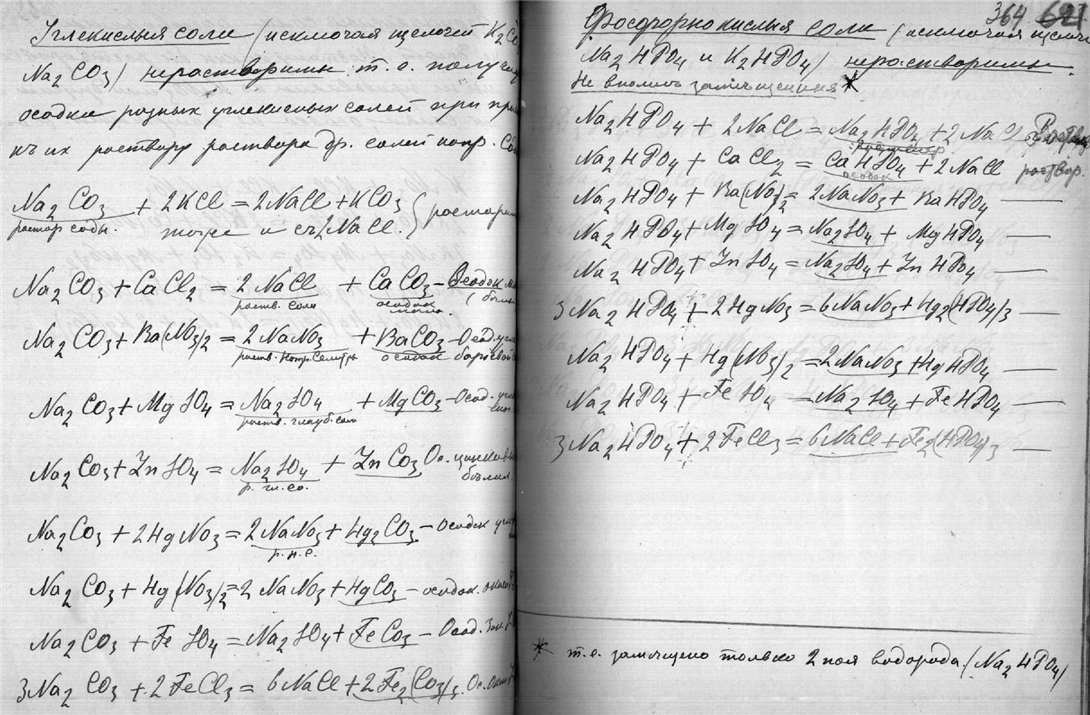 Углекислыя соли (исключая щелочей K₂CO
Na₂CO₃) нерастворимы т.е. получ
осадки разных углекислых солей при при
къ их раствору раствора др. солей напр.
Na₂CO₃ + 2KCl = 2NaCl + KCO₃ } раствори
раствор соды. тоже и съ 2NaCl.
Na₂CO₃ + CaCl₂ = 2NaCl + CaCO₃ – Осадок
раств. соли осадок мела.
Na₂CO₃ + Ba(NO₃)₂ = 2NaNO₃ + BaCO₃ – Осад. угл
раств. натр. селитры осадок
Na₂CO₃ + MgSO₄ = Na₂SO₄ + MgCO₃ – Осад. угл
раств. глауб. соли
Na₂CO₃ + ZnSO₄ = Na₂SO₄ + ZnCO₃ Ос. цинков
р. гл. со. белил
Na₂CO₃ + 2HgNO₃ = 2NaNO₃ + Hg₂CO₃ – Осадок угл
р. н. с.
Na₂CO₃ + Hg(NO₃)₂ = 2NaNO₃ + HgCO₃ – осадок. окиси
Na₂CO₃ + FeSO₄ = Na₂SO₄ + FeCO₃ – Осад. Зак.
3Na₂CO₃ + 2FeCl₃ = 6NaCl + 2Fe₂(CO₃)₃. Ос. Оки
364 621
Фосфорнокислыя соли (исключая щелоч
Na₂HPO₄ и K₂HPO₄) нерастворимы.
Не вполнѣ замѣщения*
Na₂HPO₄ + 2NaCl = Na₂HPO₄ + 2NaCl Раств
раствор
Na₂HPO₄ + CaCl₂ = CaHPO₄ + 2NaCl раствор.
осадок
Na₂HPO₄ + Ba(NO₃)₂ = 2NaNO₃ + BaHPO₄ —
Na₂HPO₄ + MgSO₄ = Na₂SO₄ + MgHPO₄ —
Na₂HPO₄ + ZnSO₄ = Na₂SO₄ + ZnHPO₄ —
3Na₂HPO₄ + 2HgNO₃ = 6NaNO₃ + Hg₂(HPO₄)₃ —
Na₂HPO₄ + Hg(NO₃)₂ = 2NaNO₃ + HgHPO₄ —
Na₂HPO₄ + FeSO₄ = Na₂SO₄ + FeHPO₄ —
3Na₂HPO₄ + 2FeCl₃ = 6NaCl + Fe₂(HPO₄)₃ —
* т.е. замѣщено только 2 пая водорода (Na₂HPO₄)